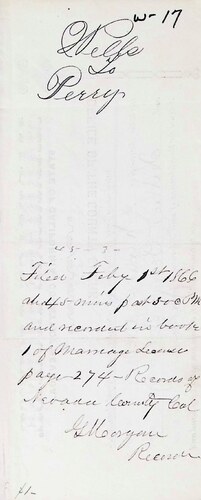 W-17
Wells
To
Perry
Filed Feby 1st 1866
at 45 mins past 5 oc P.M.
and recorded in book
1 of Marriage License
page 274 - Records of
Nevada County Cal
G Morgan
Recorder